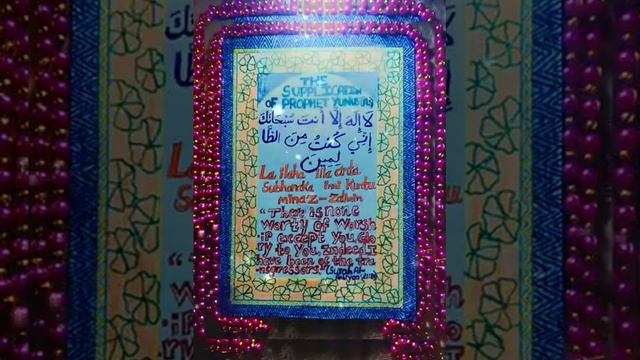 THE
SUPPLICATION
OF PROPHET YUNUS(AS)
لَا إِلَهَ إِلَّا أَنْتَ سُبْحَانَكَ
إِنِّي كُنْتُ مِنَ الظَّا
لِمِين
La ilaha illa anta
Subhanaka inni Kuntu
minaz-Zalimin
"There is none
worthy of Worsh
-if except You, Glo
ry to You, indeed, I
have been of the tra
-nsgressors."(Surah Al-